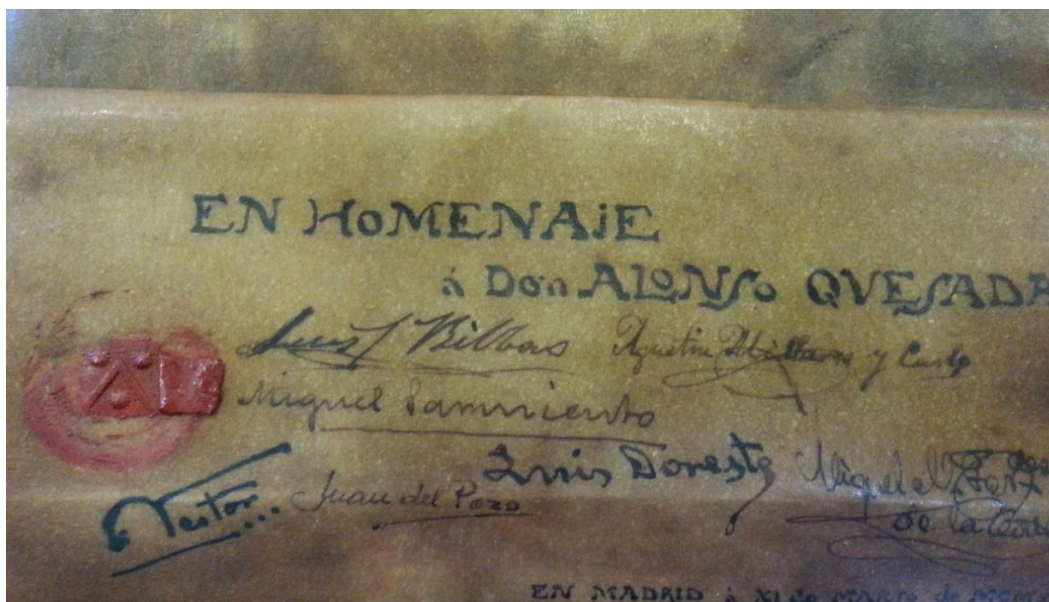 EN HOMENAJE
á Don ALONSO QVESADA
Luis Bilbao Agustín Millares y Carlo
Miguel Sarmiento
Luis Doreste Miguel
Nestor Juan del Pozo de la
EN MADRID á XI de MARZO de MCM